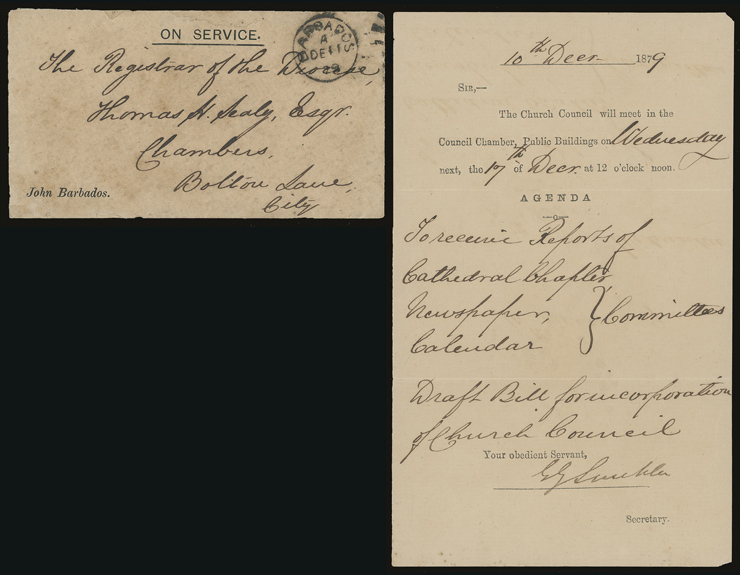 ON SERVICE.
BARBADOS
A
DE 11
The Registrar of the Diocese,
Thomas H. Sealy, Esqr.
Chambers,
Bolton Lane,
City
John Barbados.
10th Decr. 1879
SIR,—
The Church Council will meet in the
Council Chamber, Public Buildings on Wednesday
next, the 17th of Decr. at 12 o'clock noon.
AGENDA
—o—
To receive Reports of
Cathedral Chapter,
Newspaper, } Committees
Calendar
Draft Bill for incorporation
of Church Council
Your obedient Servant,
Secretary.